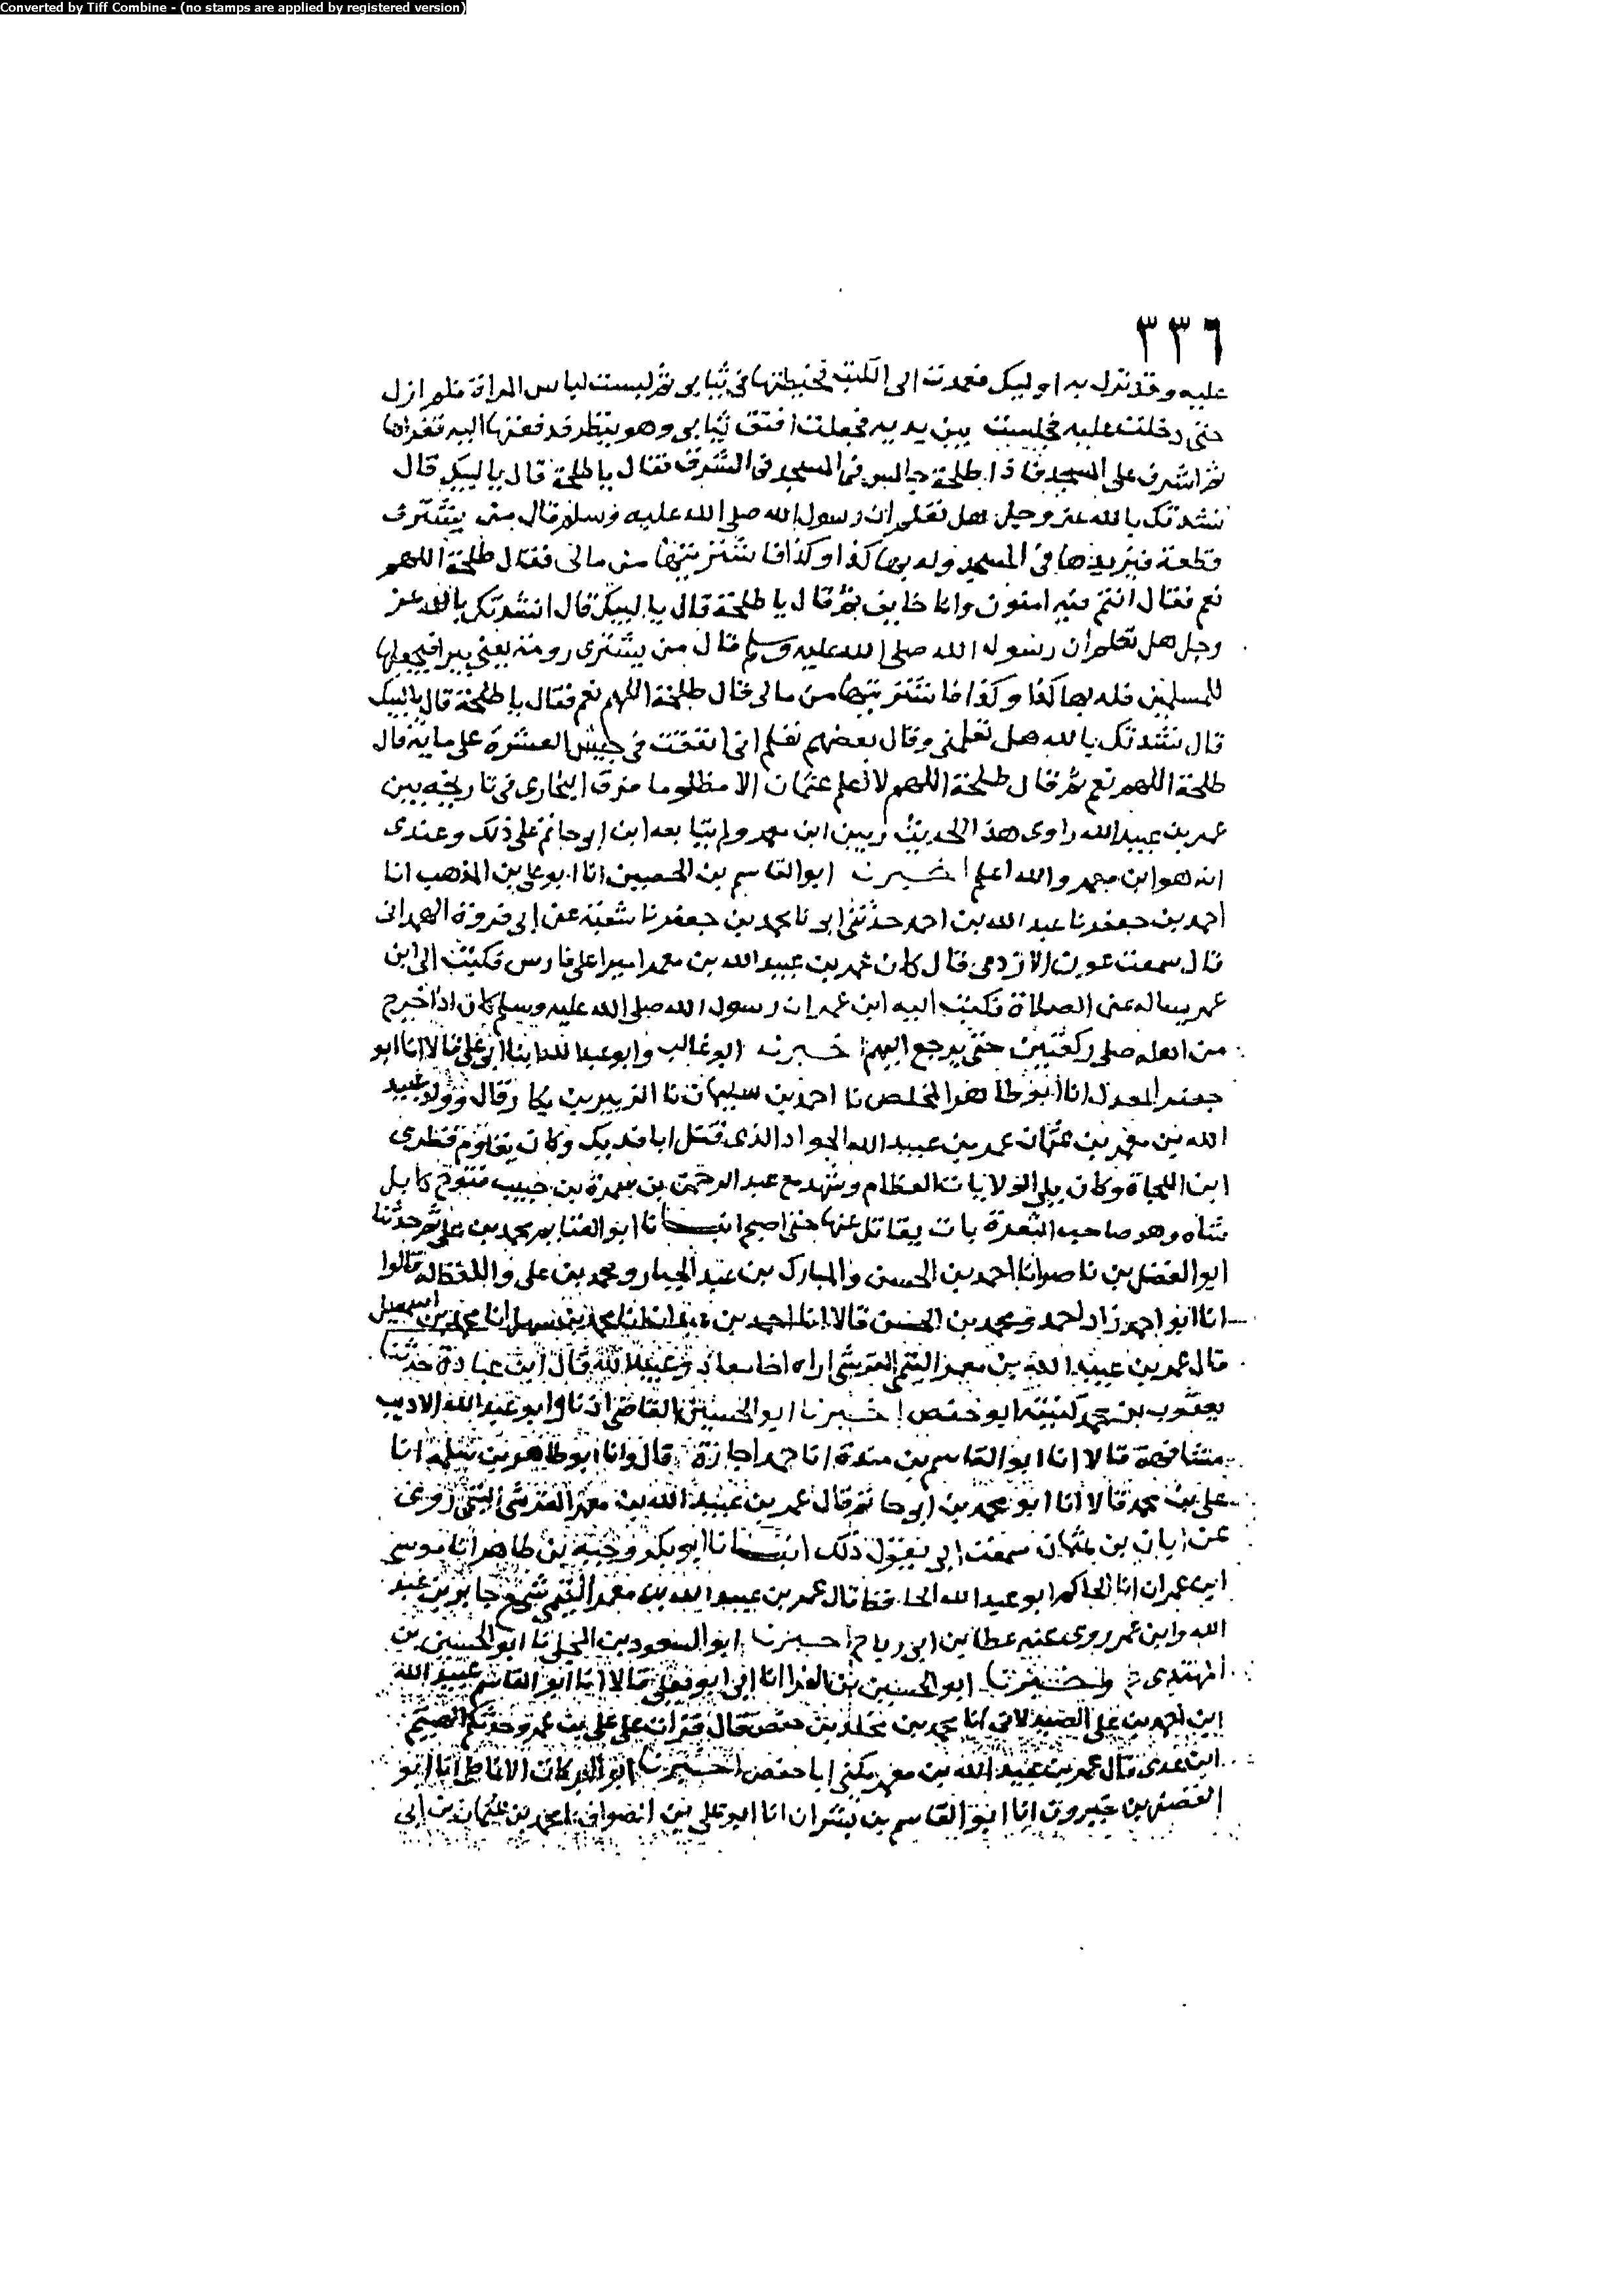 Converted by Tiff Combine - (no stamps are applied by registered version)
٣٣٦
عليه وقد نزل به اوليك فعمدت الى الكتب فخيطتها فى ثيابى ثم لبست لباس المراة فلم ازل
حتى دخلت عليه فجلست بين يديه فجعلت افتق ثيابى وهو ينظر فدفعتها اليه فقراها
ثم اشرف على المسجد فاذا طلحة جالس فى المسجد فى الشرق فقال يا طلحة قال يا لبيك قال
نشدتك بالله عز وجل هل تعلم ان رسول الله صلى الله عليه وسلم قال من يشترى
قطعة فيزيدها فى المسجد وله بها كذا وكذا فاشتريتها من مالى فقال طلحة اللهم
نعم فقال انتم فيه امنون وانا خايف ثم قال يا طلحة قال يا لبيك قال انشدتك بالله عز
وجل هل تعلم ان رسول الله صلى الله عليه وسلم قال من يشترى رومة يعنى بيرا فيجعلها
للمسلمين فله بها كذا وكذا فاشتريتها من مالى فقال طلحة اللهم نعم فقال يا طلحة قال يا لبيك
قال نشدتك بالله هل تعلمنى وقال بعضهم تعلم انى انفقت فى جيش العسرة على ماية قال
طلحة اللهم نعم ثم قال طلحة اللهم لا اعلم عثمان الا مظلوما فرق البخارى فى تاريخه بين
عمر بن عبيد الله راوى هذا الحديث وبين ابن معمر ولم يتابعه ابن ابى حاتم على ذلك وعندى
انه هو ابن معمر والله اعلم اخبرنا ابو القاسم بن الحصين انا ابو على بن المذهب انا
احمد بن جعفر نا عبد الله بن احمد حدثنى ابى نا محمد بن جعفر نا شعبة عن ابى فروة الهمدانى
قال سمعت عون الازدى قال كان عمر بن عبيد الله بن معمر اميرا على فارس فكتب الى ابن
عمر يساله عن الصلاة فكتب اليه ابن عمر ان رسول الله صلى الله عليه وسلم كان اذا خرج
من اهله صلى ركعتين حتى يرجع اليهم اخبرنا ابو غالب وابو عبد الله ابنا ابى على قالا انا ابو
جعفر المعدل انا ابو طاهر المخلص نا احمد بن سليمان نا الزبير بن بكار قال وولد عبيد
الله بن معمر بن عثمان عمر بن عبيد الله الجواد الذى قتل ابا فديك وكان يقاوم قطرى
ابن الفجاة وكان يلى الولايات العظام وشهد مع عبد الرحمن بن سمرة بن حبيب فتوح كابل
شاه وهو صاحب الثغرة بات يقاتل عنها حتى اصبح انبانا ابو الغنايم محمد بن على ثم حدثنا
ابو الفضل بن ناصر انا احمد بن الحسن والمبارك بن عبد الجبار ومحمد بن على واللفظ له قالوا
انا ابو احمد زاد احمد ومحمد بن الحسن قالا انا احمد بن عبدان انا محمد بن سهل انا محمد بن اسمعيل
قال عمر بن عبيد الله بن معمر التيمى القرشى اراه اخا معاذ وعبيد الله قال ابن عبادة حدثنا
يعقوب بن محمد كنيته ابو حفص اخبرنا ابو الحسين القاضى اذنا وابو عبد الله الاديب
مشافهة قالا انا ابو القاسم بن مندة انا حمد اجازة قال وانا ابو طاهر بن سلمة انا
على بن محمد قالا انا ابو محمد بن ابى حاتم قال عمر بن عبيد الله بن معمر القرشى التيمى روى
عن ابان بن عثمان سمعت ابى يقول ذلك انبانا ابو بكر وجيه بن طاهر انا موسى
ابن عمران انا الحاكم ابو عبد الله الحافظ قال عمر بن عبيد الله بن معمر التيمى سمع جابر بن عبد
الله وابن عمر روى عنه عطا بن ابى رباح اخبرنا ابو السعود بن المجلى نا ابو الحسين بن
المهتدى ح واخبرنا ابو الحسين بن الفرا انا ابى ابو يعلى قالا انا ابو القاسم عبيد الله
ابن احمد بن على الصيدلانى انا محمد بن مخلد بن حفص قال قرات على على بن عمرو حدثكم الهيثم
ابن عدى قال عمر بن عبيد الله بن معمر يكنى ابا حفص اخبرنا ابو البركات الانماطى انا ابو
الفضل بن خيرون انا ابو القاسم بن بشران انا ابو على بن الصواف نا محمد بن عثمان بن ابى